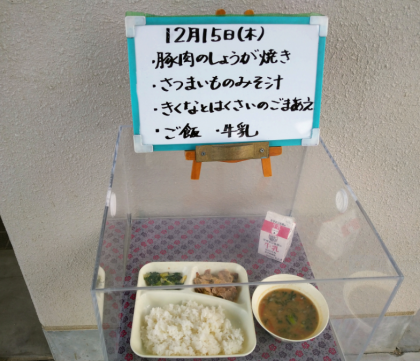 12月15日(木)
・豚肉のしょうが焼き
・さつまいものみそ汁
・きくなとはくさいのごまあえ
・ご飯 ・牛乳